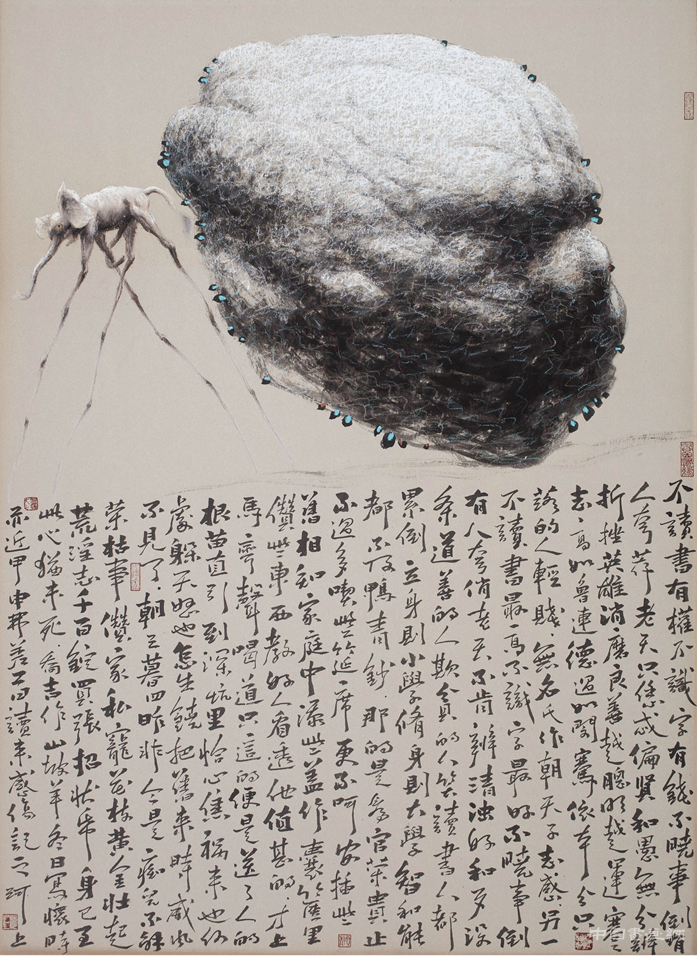 不讀書有權不識字有錢不曉事倒有
人夸荐老天只恁忒偏賢和愚無分辨
折挫英雄消磨良善越聰明越運蹇
志高如魯連德過如閔騫依本分只
落的人輕賤無名氏作朝天子志感另一
不讀書最高不識字最好不曉事倒
有人夸俏老天不肯辨清濁好和歹沒
条道善的人欺貧的人笑讀書人都
累倒立身則小學脩身則大學智和能
都不及鴨青鈔那的是爲官榮貴止
不過多喫些筵席更不呵安插些
舊相知家庭中添些蓋作囊篋里
儹些東西教好人看透他值甚的才上
馬齊聲喝道只這的便是送了人的
根苗直引到深坑里恰心焦禍来也何
處躲天怒也怎生饒把舊来時威風
不見了朝三暮四昨非今是痴兒不解
榮枯事儹家私寵花枝黄金壯起
荒淫志千百錠買張招狀帋身已至
此心猶未死喬吉作山坡羊冬日寫懷時
亦近甲申 讀来感傷記之珂上